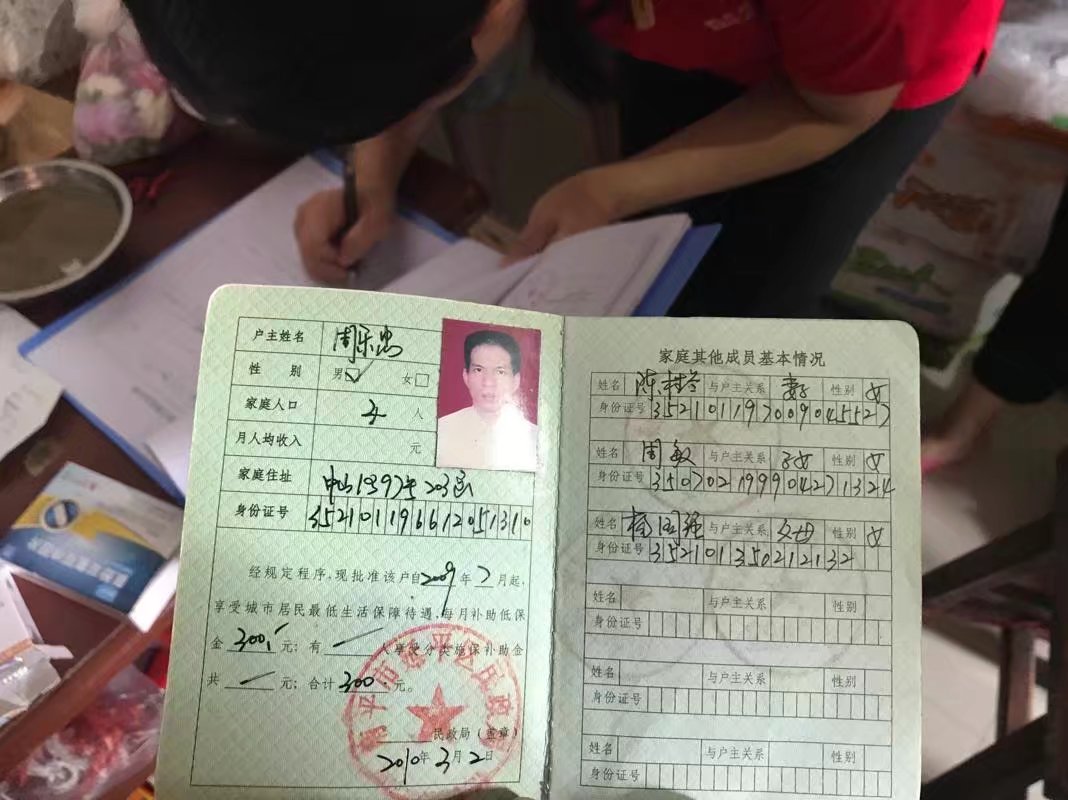 户主姓名 周乐忠
性 别 男☑ 女□
家庭人口 4 人
月人均收入 元
家庭住址 中山 97号203室
身份证号 352101196612051310
经规定程序,现批准该户自2009年7月起,
享受城市居民最低生活保障待遇,每月补助低保
金 300 元;有 人享受分类施保补助金
共 元;合计 300 元。
民政局(盖章)
2010年3月2日
南平市延平区民政局
家庭其他成员基本情况
姓名 陈树 与户主关系 妻子 性别 女
身份证号 352101197009045527
姓名 周敏 与户主关系 子女 性别 女
身份证号 350702199904271324
姓名 杨 与户主关系 父母 性别 女
身份证号 352101350212132
姓名 与户主关系 性别
身份证号
姓名 与户主关系 性别
身份证号
姓名 与户主关系 性别
身份证号